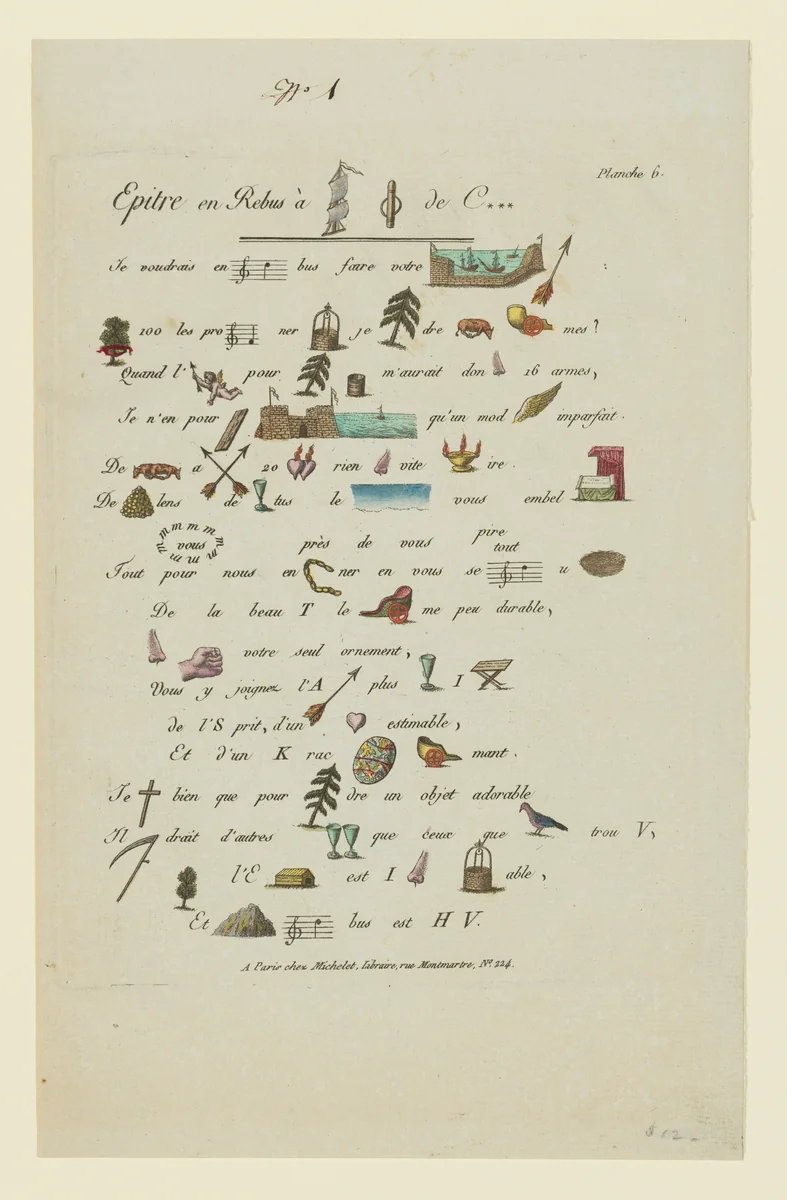 No 1
Planche 6.
Epitre en Rebus à de C***
Je voudrais en bus faire votre :
100 les pro ner je dre mes?
Quand l' pour m'aurait don 16 armes,
Je n'en pour qu'un mod imparfait.
De a 20 rien vite ire.
De lens de tus le vous embel
m m m m m m m m m
vous
près de vous
pire
tout
Tout pour nous en ner en vous se u
De la beau T le me peu durable,
votre seul ornement,
Vous y joignez l'A plus I
de l'S prit, d'un estimable,
Et d'un K rac mant.
Je bien que pour dre un objet adorable
Il drait d'autres que ceux que trou V,
l'E est I able,
Et bus est H V.
A Paris chez Michelet, Libraire, rue Montmartre, No 224.